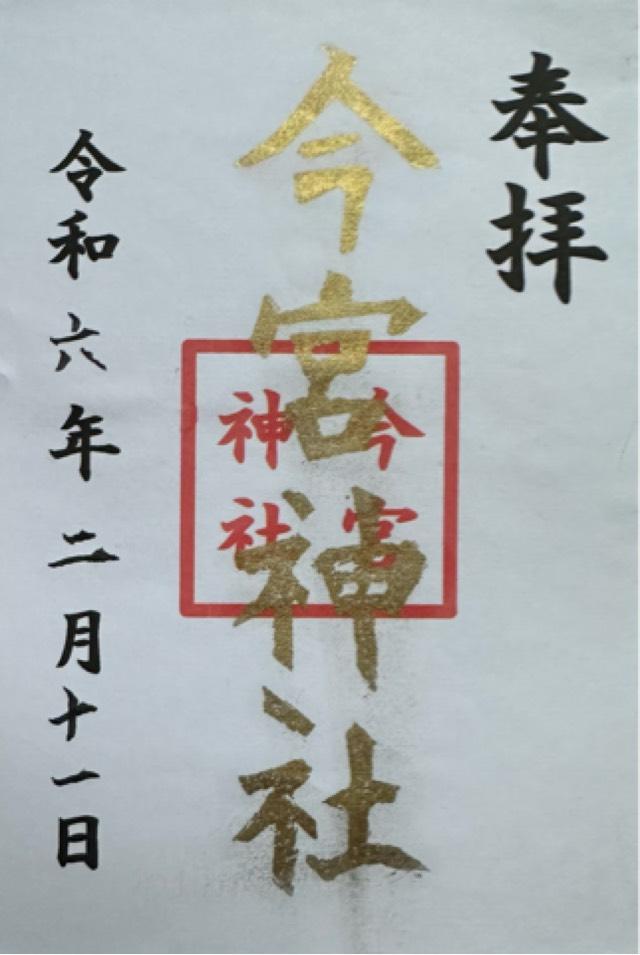 奉拝
今宮神社
今宮
神社
令和六年二月十一日